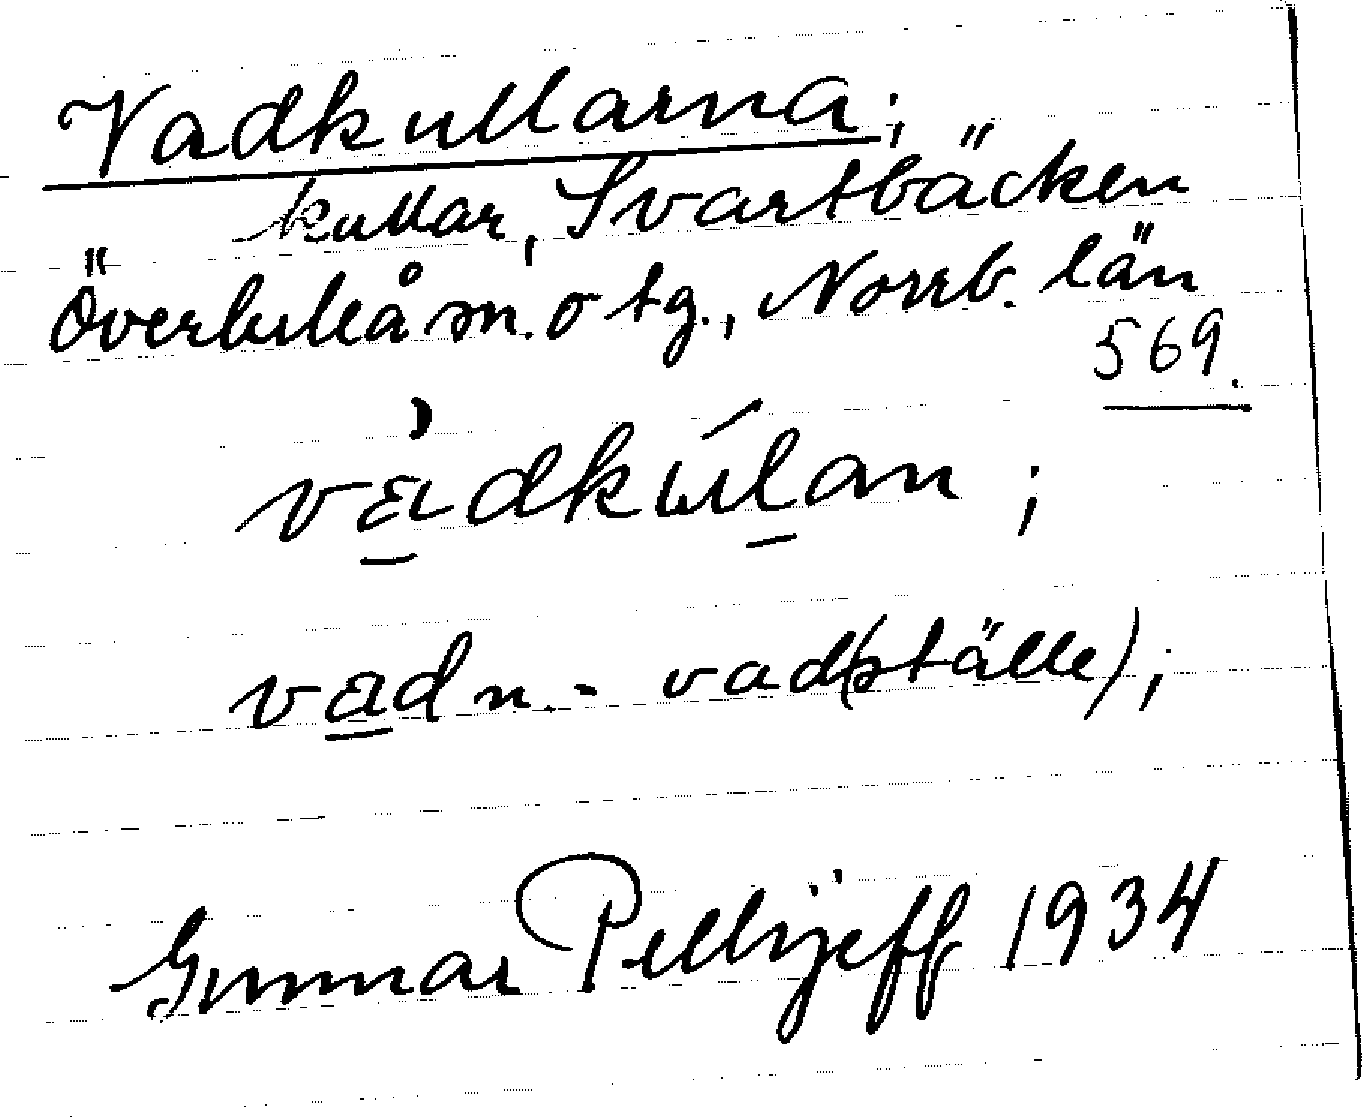 Vadkullarna;
kullar, Svartbäcken
Överluleå sn. o tg., Norrb. län
569.
vàdkúlan ;
vad n. - vad(ställe);
Gunnar Pellijeff 1934